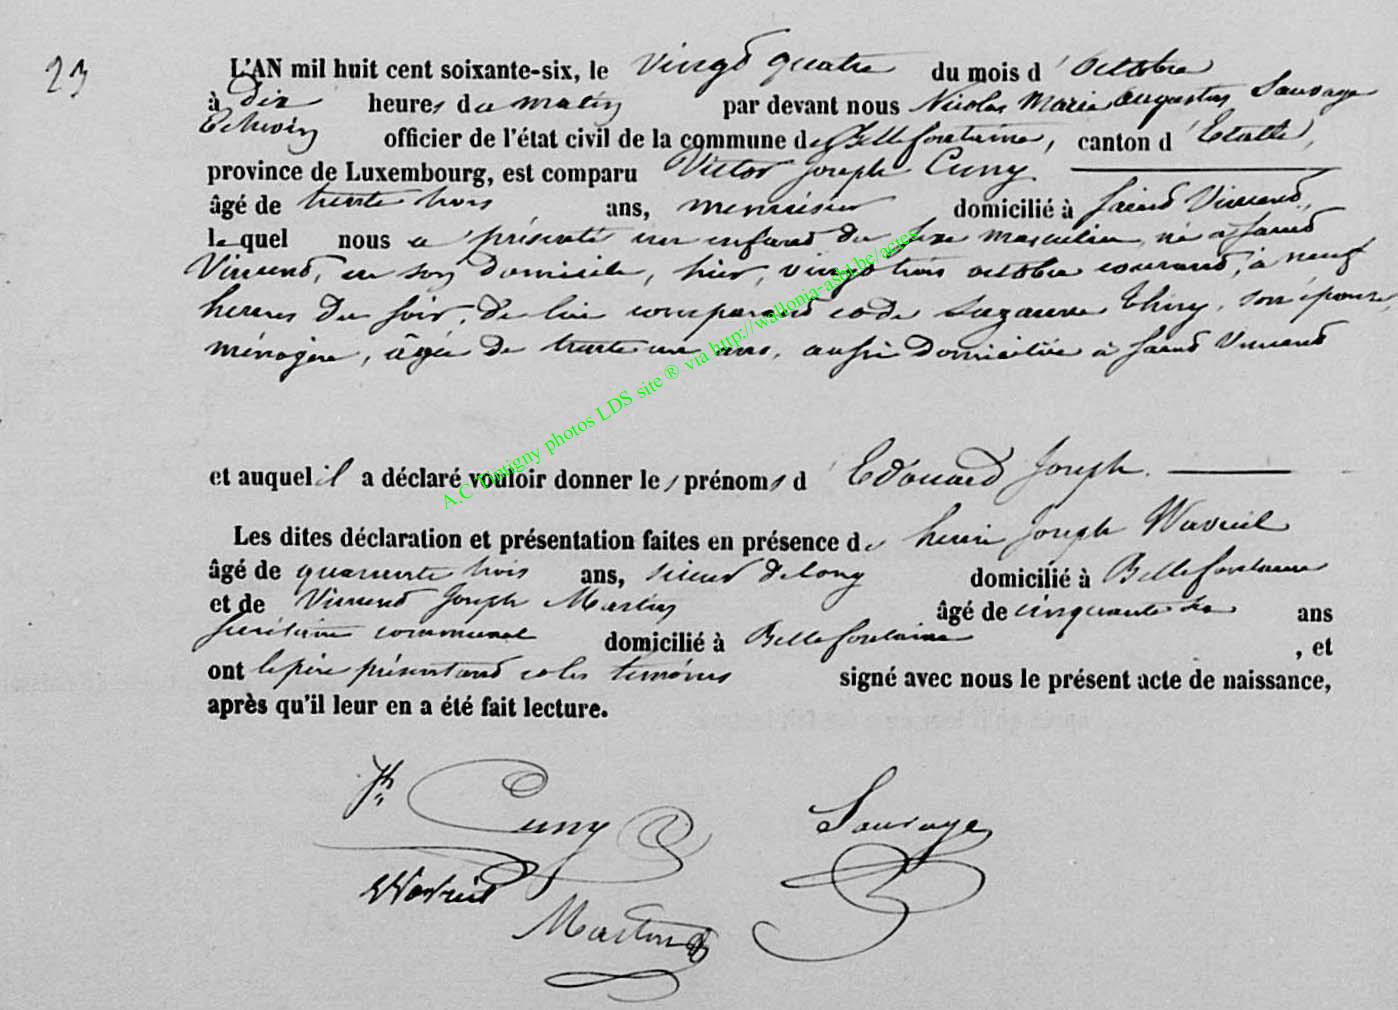 23
L'AN mil huit cent soixante-six, le vingt quatre du mois d'octobre
à dix heures du matin par devant nous Nicolas Marie Augustin Sauvage
Echevin officier de l'état civil de la commune de Bellefontaine, canton d'Etalle,
province de Luxembourg, est comparu Victor Joseph Cuny
âgé de trente trois ans, menuisier domicilié à Saint Vincent,
lequel nous a présenté un enfant du sexe masculin, né à Saint
Vincent, en son domicile, hier, vingt trois octobre courant, à neuf
heures du soir, de lui comparant et de Suzanne Thiry, son épouse,
ménagère, âgée de trente un ans, aussi domiciliée à Saint Vincent
et auquel il a déclaré vouloir donner les prénoms d'Edouard Joseph.
Les dites déclaration et présentation faites en présence de henri Joseph Wavreil
âgé de quarante trois ans, scieur de long domicilié à Bellefontaine
et de Vincent Joseph Martin âgé de cinquante ans
secrétaire communal domicilié à Bellefontaine, et
ont le père présentant et les témoins signé avec nous le présent acte de naissance,
après qu'il leur en a été fait lecture.
Jh Cuny Sauvage
Wavreil
Martin
A.C Tintigny photos LDS site ® via http://wallonia-asbl.be/actes